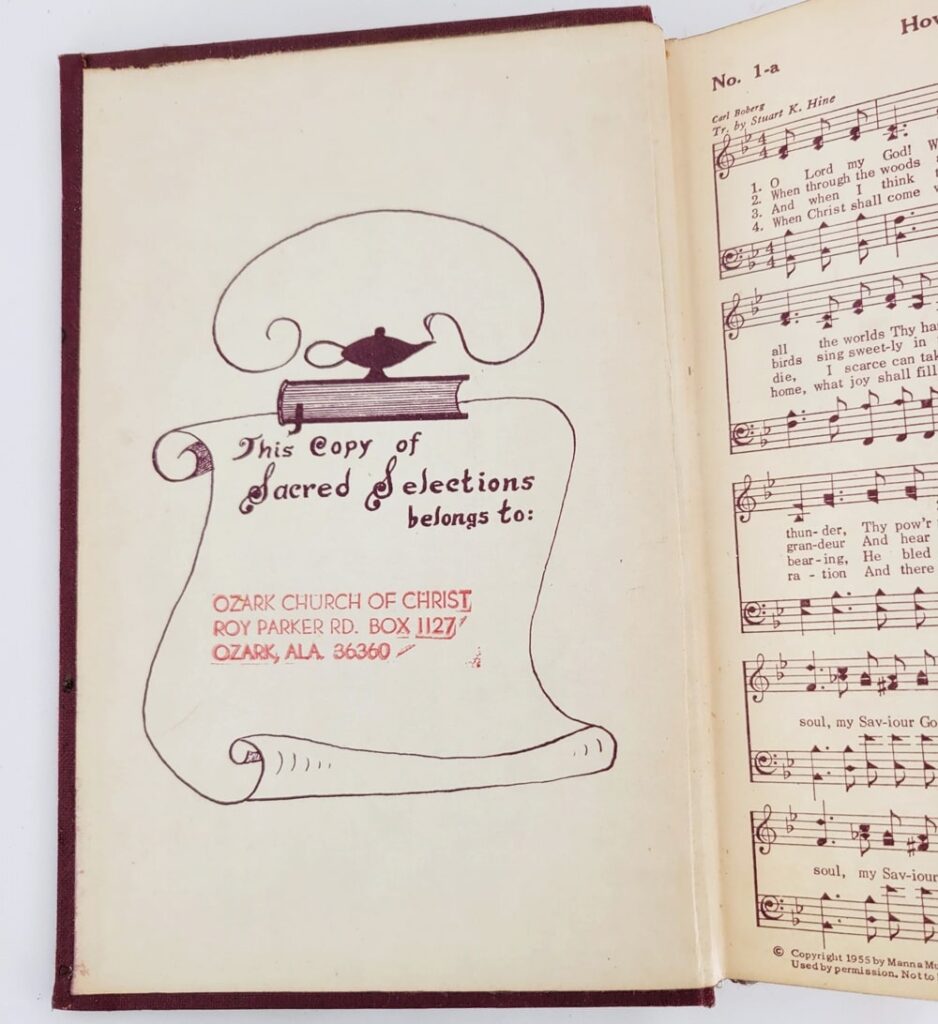 This Copy of
Sacred Selections
belongs to:
OZARK CHURCH OF CHRIST
ROY PARKER RD. BOX 1127
OZARK, ALA. 36360
No. 1-a
Carl Boberg
Tr. by Stuart K. Hine
1. O Lord my God!
2. When through the woods
3. And when I think
4. When Christ shall come
all the worlds Thy
birds sing sweet-ly in
die, I scarce can
home, what joy shall fill
thun-der, Thy pow'r
gran-deur And hear
bear-ing, He bled
ra-tion And there
soul, my Sav-iour
soul, my Sav-iour
© Copyright 1955 by Manna
Used by permission. Not to